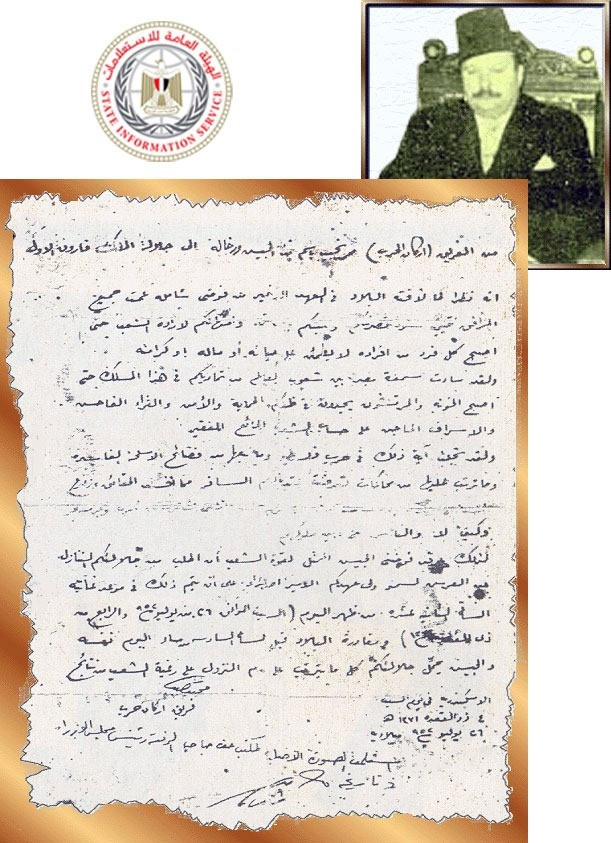 الهيئة العامة للاستعلامات
STATE INFORMATION SERVICE
من الفريق (أركان الحرب) محمد نجيب باسم الجيش ورجاله الى جلالة الملك فاروق الأول
انه نظرا لما لاقته البلاد في العهد الأخير من فوضى شاملة عمت جميع
المرافق نتيجة سوء تصرفكم وعبثكم وامتهانكم لارادة الشعب حتى
اصبح كل فرد من افراده لا يطمئن على حياته أو ماله او كرامته
ولقد ساءت سمعة مصر بين شعوب العالم من تماديكم في هذا المسلك حتى
اصبح الخونة والمرتشون يجدون في ظلكم الحماية والأمن والثراء الفاحش
والاسراف الماجن على حساب الشعب الجائع الفقير
ولقد تجلت آية ذلك في حرب فلسطين وما تبعها من فضائح الاسلحة الفاسدة
وما ترتب عليها من محاكمات تعرضت لتدخلكم السافر مما افسد الحقائق وزعزع
وكيف لا والناس على دين ملوكهم
لذلك قد فوضني الجيش الممثل لقوة الشعب أن اطلب من جلالتكم التنازل
عن العرش لسمو ولي عهدكم الامير احمد فؤاد على أن يتم ذلك في موعد غايته
الساعة الثانية عشرة من ظهر اليوم (السبت الموافق ٢٦ من يوليو ١٩٥٢ والرابع من
ذي القعدة ١٣٧١) ومغادرة البلاد قبل الساعة السادسة من مساء اليوم نفسه
والجيش يحمل جلالتكم كل ما يترتب على عدم النزول على رغبة الشعب من نتائج
فريق أركان حرب
الاسكندرية في يوم السبت
٤ ذو القعدة ١٣٧١ هـ
٢٦ يوليو ١٩٥٢ ميلادية
استلمت الصورة الأصلية لمكتب صاحب الرفعة رئيس مجلس الوزراء